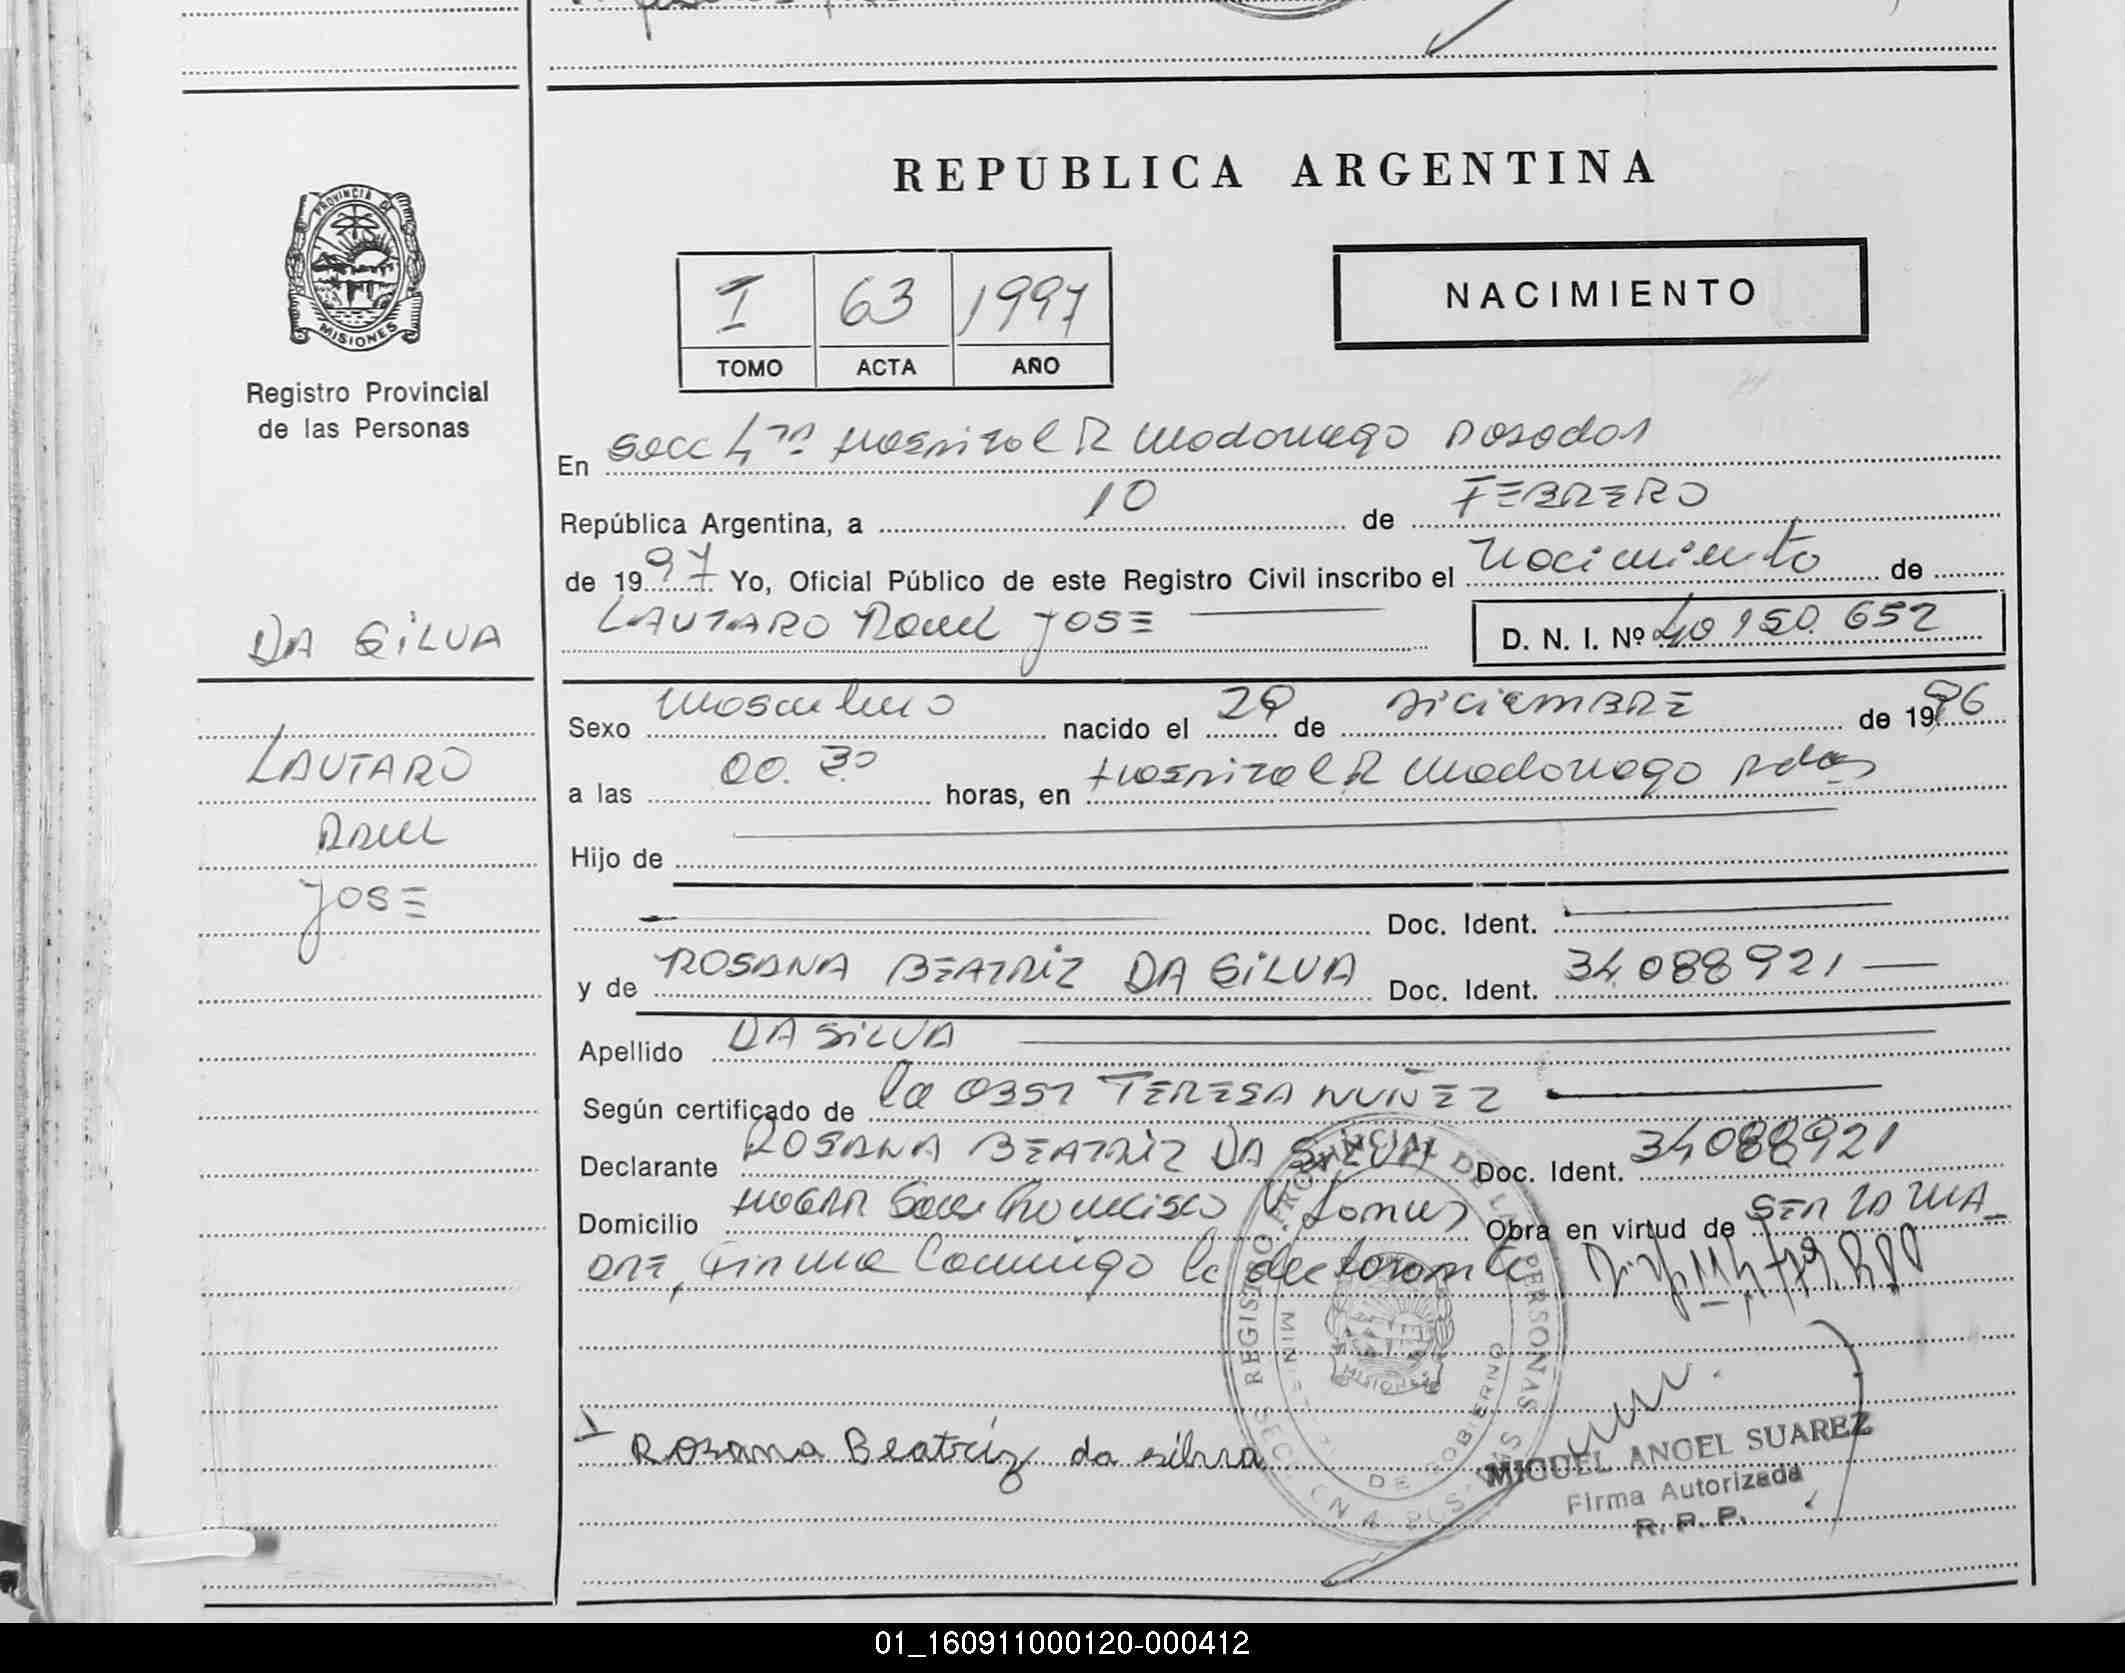 REPUBLICA ARGENTINA
PROVINCIA DE
MISIONES
Registro Provincial
de las Personas
I 63 1997
TOMO ACTA AÑO
NACIMIENTO
En Secc 4ta Hospital R Madariaga Posadas
República Argentina, a 10 de FEBRERO
de 1997 Yo, Oficial Público de este Registro Civil inscribo el nacimiento de
LAUTARO RAUL JOSE
D. N. I. Nº 40 150. 652
DA SILVA
LAUTARO
RAUL
JOSE
Sexo masculino nacido el 29 de DiciEMBRE de 1996
a las 00. 30 horas, en Hospital R Madariaga Pdas
Hijo de
Doc. Ident.
y de ROSANA BEATRiZ DA SiLVA Doc. Ident. 34 088 921
Apellido DA SiLVA
Según certificado de la Obst TERESA NUÑEZ
Declarante ROSANA BEATRiZ DA SiLVA Doc. Ident. 34088921
Domicilio HOGAR Obra en virtud de SER LA MA-
DRE, Firma Conmigo la declarante
REGISTRO PROVINCIAL DE LAS PERSONAS
DE GOBIERNO
MISIONES
Rosana Beatríz da silva
MIGUEL ANGEL SUAREZ
Firma Autorizada
R. P. P.
01_160911000120-000412